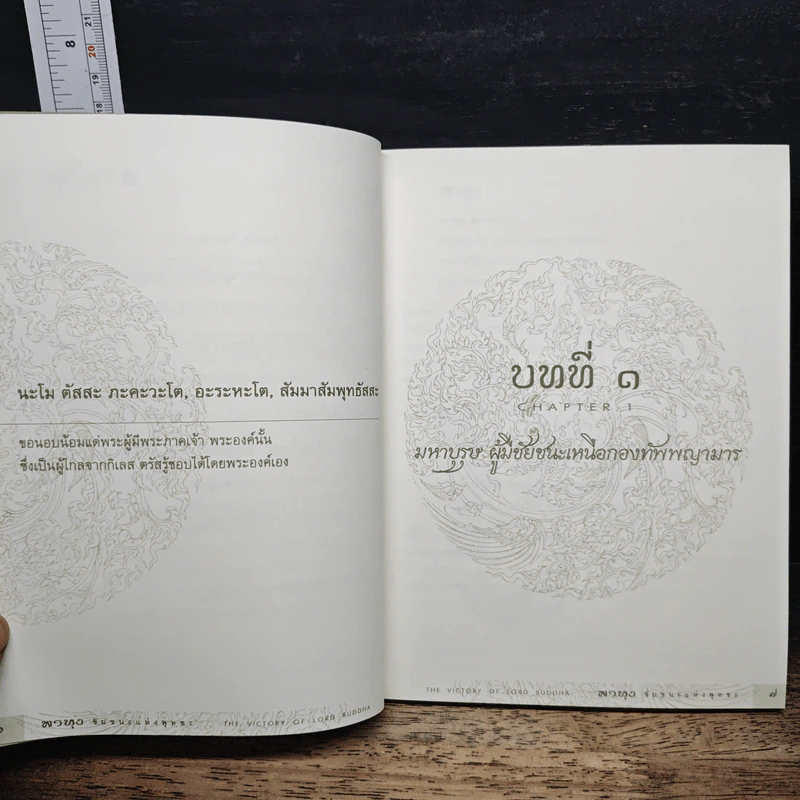 8
21
20
19
18
นะโม ตัสสะ ภะคะวะโต, อะระหะโต, สัมมาสัมพุทธัสสะ
ขอนอบน้อมแด่พระผู้มีพระภาคเจ้า พระองค์นั้น
ซึ่งเป็นผู้ไกลจากกิเลส ตรัสรู้ชอบได้โดยพระองค์เอง
พาหุง ชัยชนะแห่งพุทธะ THE VICTORY OF LORD BUDDHA
บทที่ ๑
CHAPTER 1
มหาบุรุษ ผู้มีชัยชนะเหนือกองทัพพญามาร
THE VICTORY OF LORD BUDDHA พาหุง ชัยชนะแห่งพุทธะ ๗